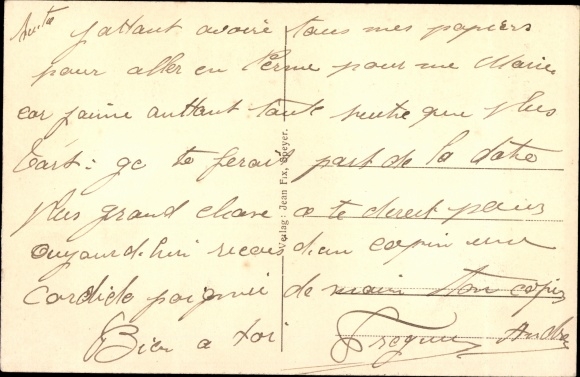 J attant avoire tous mes papiers
pour aller en Perme pour me Marie
car j'aime auttant tante que plus
Tart: ge te ferait part de la date
Plus grand chose a te
oujourd.hui recois d.un copin une
Cordiale poignié de main Ton copin
Bien a toi André
Verlag: Jean Fix, Speyer.